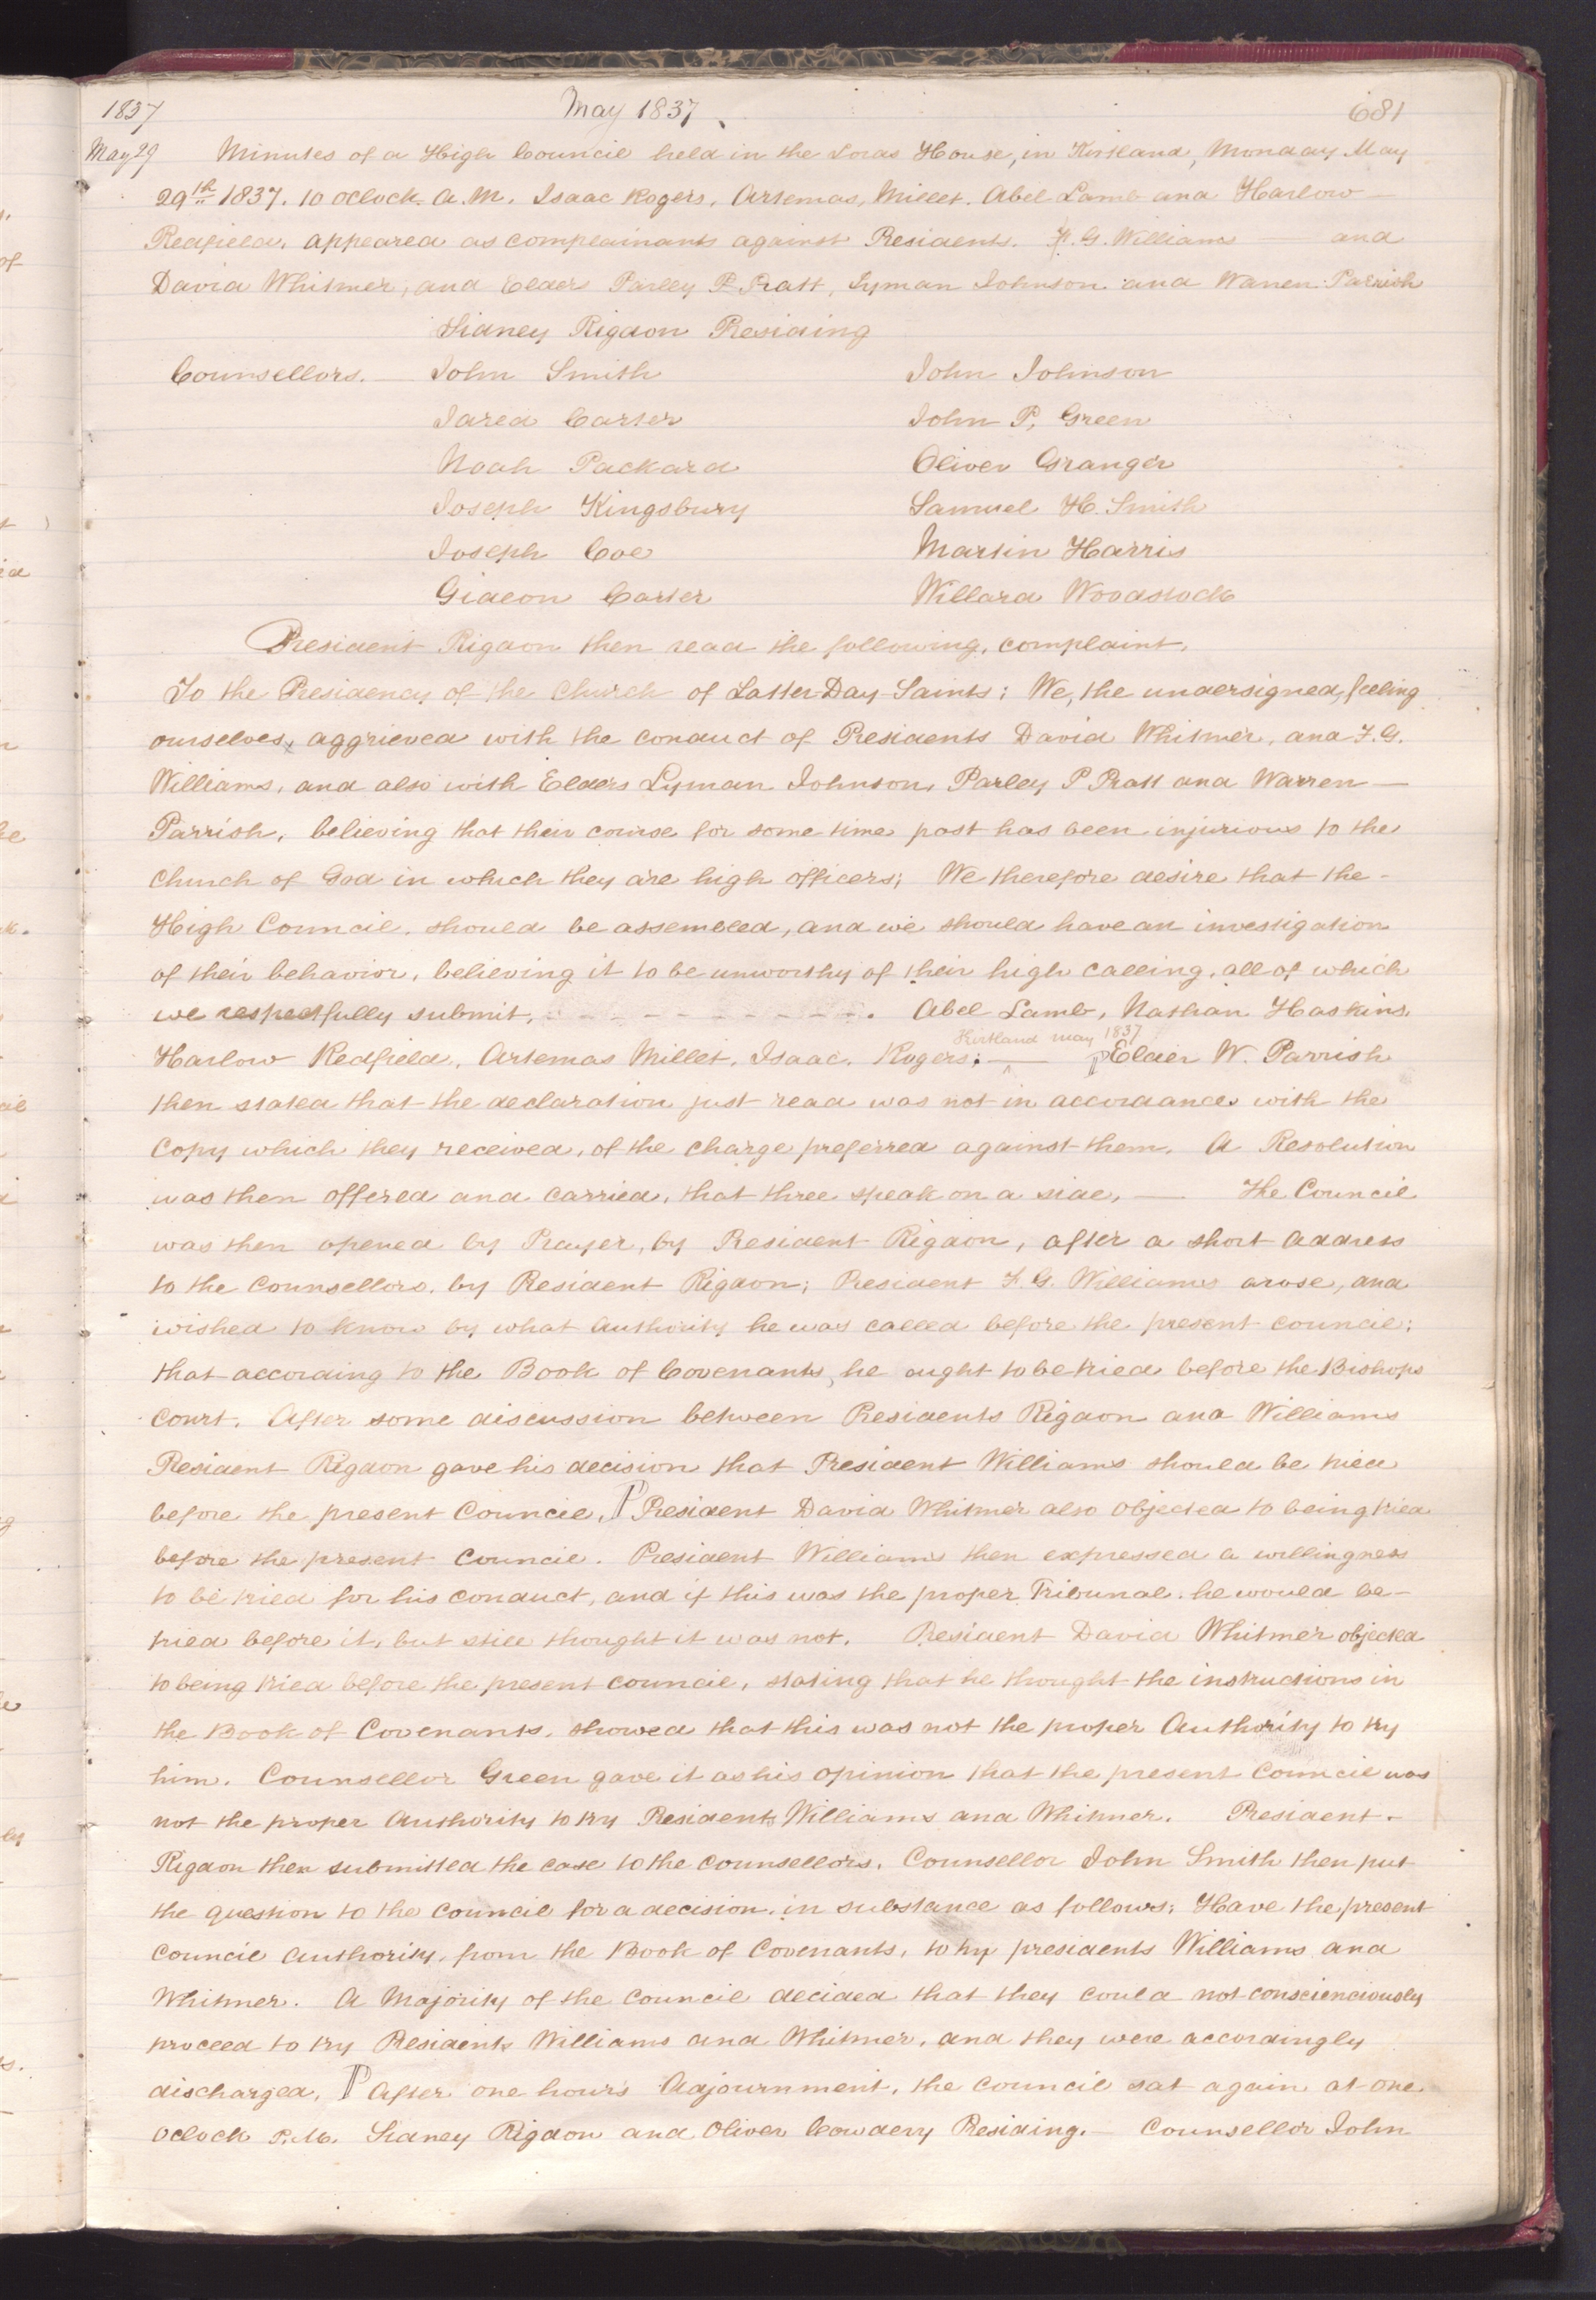 1837 May 1837 681
May 29 Minutes of a High Council held in the Lords House, in Kirtland, Monday May
29th 1837. 10 oclock. A. M. Isaac Rogers, Artemas, Millet. Abel Lamb and Harlow
Redfield, appeared as complainants against Presidents. F. G. Williams and
David Whitmer, and Elders Parley P. Pratt, Lyman Johnson and Warren Parrish
Sidney Rigdon Presiding
Counsellors. John Smith John Johnson
Jared Carter John P, Green
Noah Packard Oliver Granger
Joseph Kingsbury Samuel H. Smith
Joseph Coe Martin Harris
Gideon Carter Willard Woodstock
President Rigdon then read the following, complaint,
To the Presidency of the Church of Latter Day Saints; We, the undersigned, feeling
ourselves, aggrieved with the conduct of Presidents David Whitmer, and F. G.
Williams, and also with Elders Lyman Johnson, Parley P Pratt and Warren —
Parrish, believing that their course for some time past has been injurious to the
Church of God in which they are high officers; We therefore desire that the -
High Council. should be assembled, and we should have an investigation
of their behavior, believing it to be unworthy of their high calling, all of which
we respectfully submit, - - - - - - - - - . Abel Lamb, Nathan Haskins,
Kirtland May 1837
Harlow Redfield, Artemas Millet, Isaac. Rogers; — Elder W. Parrish
then stated that the declaration just read was not in accordance with the
Copy which they received, of the charge preferred against them. A Resolution
was then offered and carried, that three speak on a side, — The Council
was then opened by Prayer, by President Rigdon, after a short address
to the Counsellors, by President Rigdon; President F. G. Williams arose, and
wished to know by what authority he was called before the present council;
that according to the Book of Covenants, he ought to be tried before the Bishops
court. After some discussion between Presidents Rigdon and Williams
President Rigdon gave his decision that President Williams should be tried
before the present Council, President David Whitmer also objected to being tried
before the present Council. President Williams then expressed a willingness
to be tried for his conduct, and if this was the proper Tribunal. he would be -
tried before it, but still thought it was not. President David Whitmer objected
to being tried before the present council, stating that he thought the instructions in
the Book of Covenants. showed that this was not the proper Authority to try
him. Counsellor Green gave it as his opinion that the present Council was
not the proper Authority to try Presidents Williams and Whitmer. President -
Rigdon then submitted the case to the counsellors. Counsellor John Smith then put
the question to the Council for a decision, in substance as follows; Have the present
council authority, from the Book of Covenants, to try presidents Williams and
Whitmer. A Majority of the Council decided that they could not conscienciously
proceed to try Presidents Williams and Whitmer, and they were accordingly
discharged, After one hours Adjournment, the council sat again at one
oclock P.M. Sidney Rigdon and Oliver Cowdery Presiding. — Counsellor John